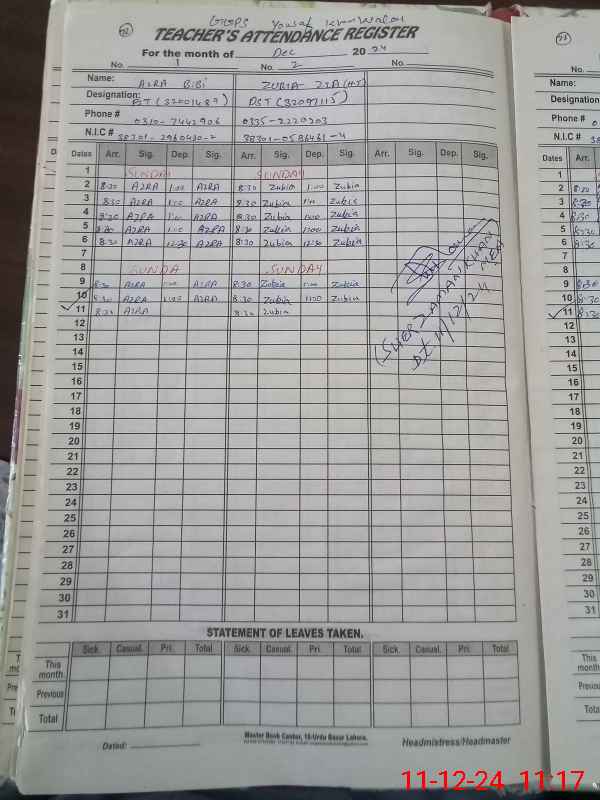 GGPS Yousaf Khan Walou
TEACHER'S ATTENDANCE REGISTER
For the month of Dec 20 24
No. 1 No. 2 No.
Name: AZRA BIBI ZUBIA ZIA (HT)
Designation: PST (32001489) PST (32097115)
Phone # 0310-7442906 0335-2229203
N.I.C # 38301-2960430-2 38301-0586461-4
Dates Arr. Sig. Dep. Sig. Arr. Sig. Dep. Sig. Arr. Sig. Dep. Sig.
1 SUNDAY SUNDAY
2 8:30 AZRA 1:00 AZRA 8:30 Zubia 1:00 Zubia
3 8:30 AZRA 1:00 AZRA 8:30 Zubia Zubia
4 8:30 AZRA 1:00 AZRA 8:30 Zubia 1:00 Zubia
5 8:30 AZRA 1:00 AZRA 8:30 Zubia 1:00 Zubia
6 8:30 AZRA 12:30 AZRA 8:30 Zubia 12:30 Zubia
7
8 SUNDA SUNDAY
9 8:30 AZRA 1:00 AZRA 8:30 Zubia 1:00 Zubia
10 8:30 AZRA 1:00 AZRA 8:30 Zubia 1:00 Zubia
11 8:30 AZRA 8:30 Zubia
(SHER ZAMAN KHAN
MEA
Dt. 11/12/24
12
13
14
15
16
17
18
19
20
21
22
23
24
25
26
27
28
29
30
31
STATEMENT OF LEAVES TAKEN.
Sick. Casual. Pri. Total Sick. Casual. Pri. Total Sick. Casual. Pri. Total
This month
Previous
Total
Master Book Center, 18-Urdu Bazar Lahore.
Dated: Headmistress/Headmaster
23
Name:
Designation
Phone #
N.I.C #
Dates Arr.
1
2 8:30
3 8:30
4 8:30
5 8:30
6 8:30
7
8
9
10
11 8:30
12
13
14
15
16
17
18
19
20
21
22
23
24
25
26
27
28
29
30
31
This month
Previous
Total
11-12-24 11:17